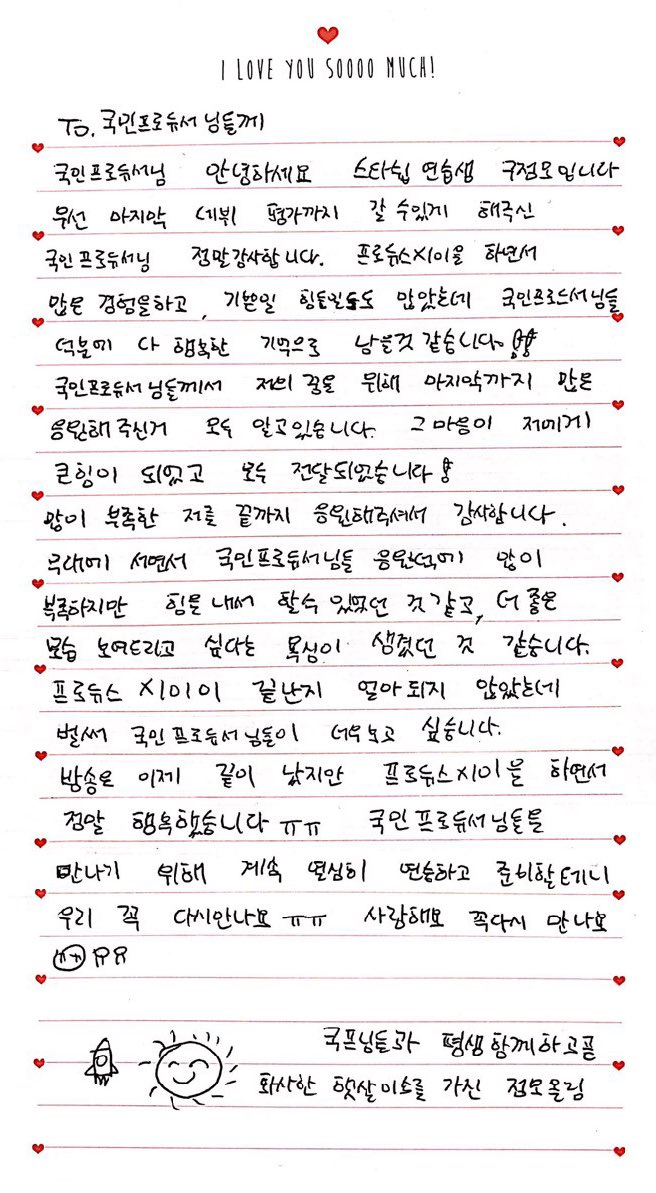 I LOVE YOU SOOOO MUCH!
To. 국민프로듀서님들께
국민프로듀서님 안녕하세요 스타쉽 연습생 구정모입니다
우선 마지막 데뷔 평가까지 갈 수있게 해주신
국민프로듀서님 정말감사합니다. 프로듀스X101을 하면서
많은 경험을하고, 기쁜일 힘든일들도 많았는데 국민프로듀서님들
덕분에 다 행복한 기억으로 남을것 같습니다.
국민프로듀서님들께서 저의 꿈을 위해 마지막까지 많은
응원해주신거 모두 알고있습니다. 그 마음이 저에게
큰힘이 되었고 모두 전달되었습니다
많이 부족한 저를 끝까지 응원해주셔서 감사합니다.
무대에 서면서 국민프로듀서님들 응원덕에 많이
부족하지만 힘을내서 할수 있었던 것같고, 더 좋은
모습 보여드리고 싶다는 욕심이 생겼던 것 같습니다.
프로듀스 X101이 끝난지 얼마되지 않았는데
벌써 국민프로듀서님들이 너무보고 싶습니다.
방송은 이제 끝이 났지만 프로듀스X101을 하면서
정말 행복했습니다 ㅠㅠ 국민프로듀서님들을
만나기 위해 계속 열심히 연습하고 준비할테니
우리 꼭 다시만나요 ㅠㅠ 사랑해요 꼭다시 만나요
ㅠㅠ
국프님들과 평생함께하고픈
화사한 햇살미소를 가진 정모올림